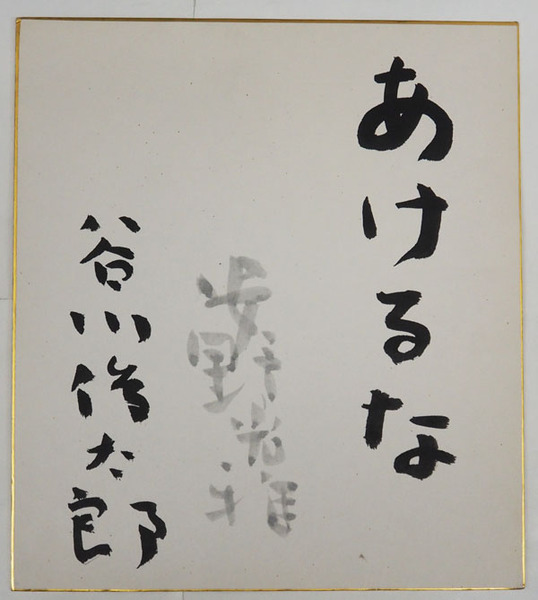 あけるな
安野光雅
谷川俊太郎